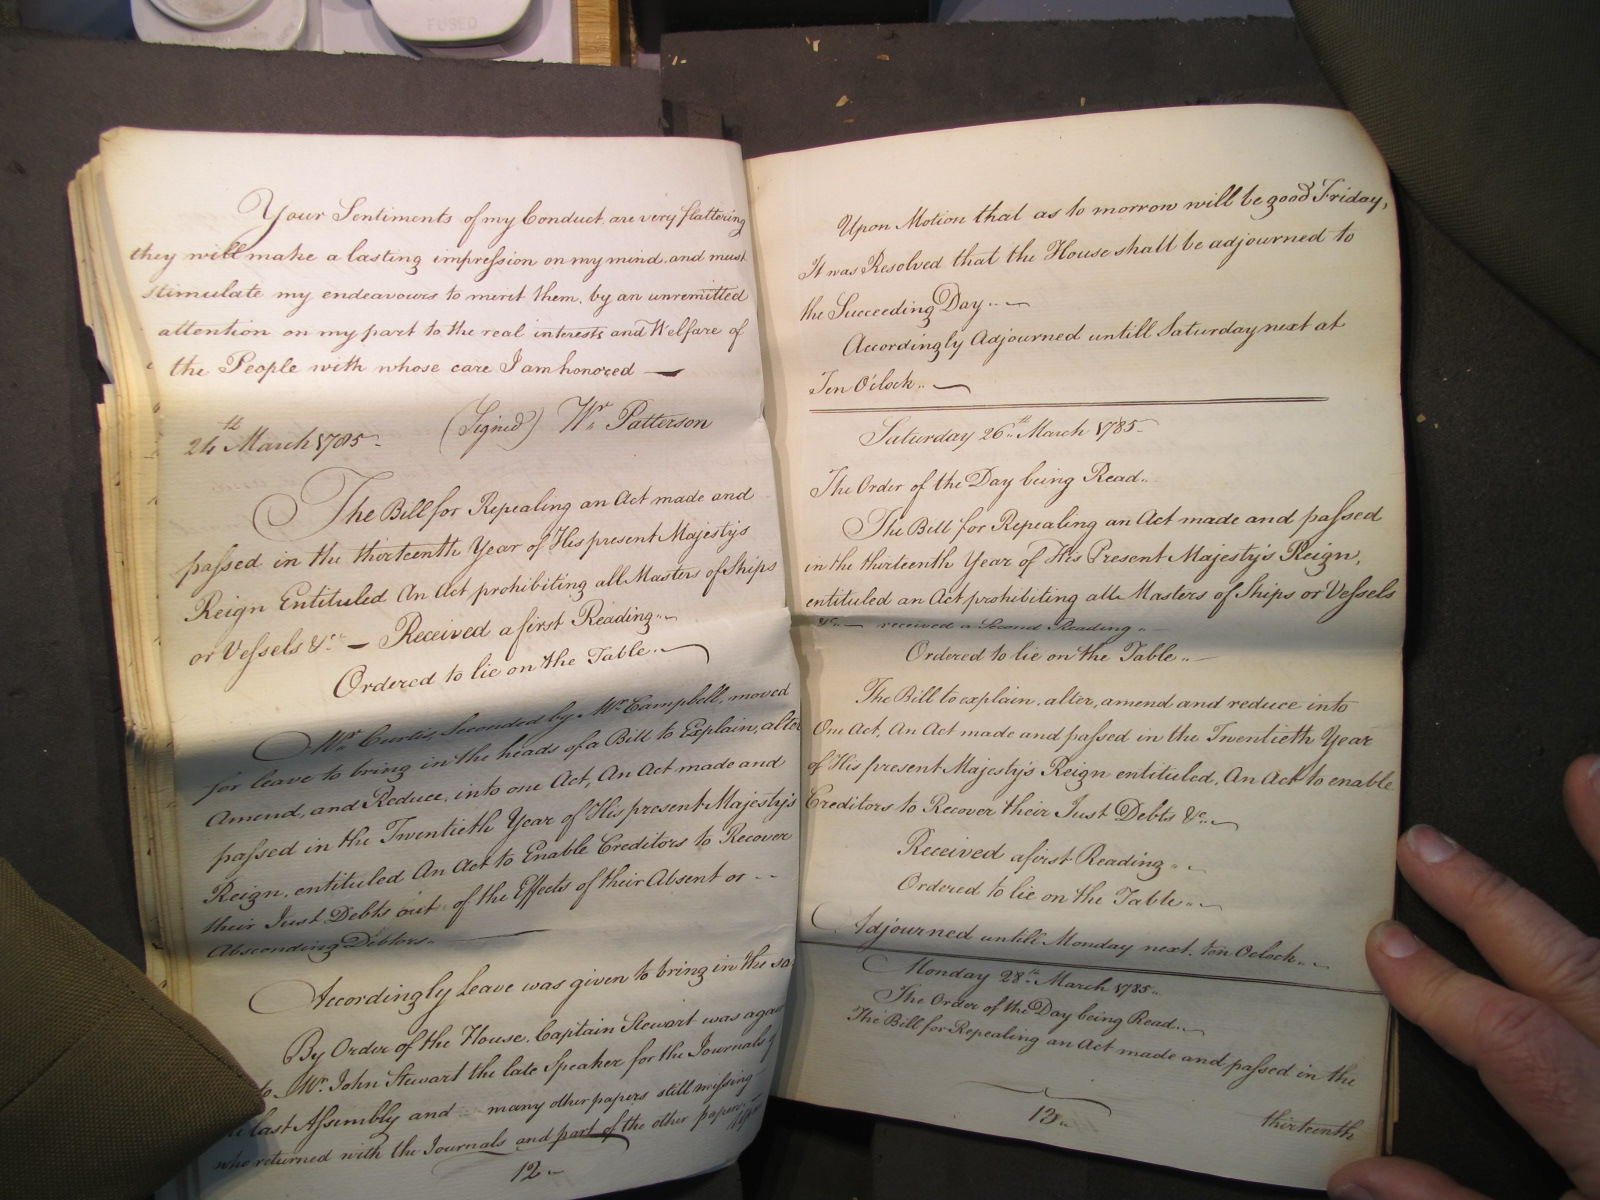 FUSED
Your Sentiments of my Conduct, are very flattering
they will make a lasting impression on my mind, and must
stimulate my endeavours to merit them, by an unremitted
attention on my part to the real interests and Welfare of
the People with whose care I am honored —
24th March 1785. (Signed) Wm Patterson
The Bill for Repealing an Act made and
passed in the thirteenth Year of His present Majesty's
Reign Entituled An Act prohibiting all Masters of Ships
or Vessels &c. — Received a first Reading..
Ordered to lie on the Table..
Mr. Curtis, Seconded by Mr. Campbell, moved
for leave to bring in the heads of a Bill to Explain, alter
Amend, and Reduce, into one Act, An Act made and
passed in the Twentieth Year of His present Majesty's
Reign, entituled An Act to Enable Creditors to Recover
their Just Debts out of the Effects of their Absent or --
Absconding Debtors. —
Accordingly Leave was given to bring in the sa
By Order of the House, Captain Stewart was again
to Mr. John Stewart the late Speaker for the Journals of
last Assembly and many other papers still missing
who returned with the Journals and part of the other papers
12
Upon Motion that as to morrow will be good Friday,
It was Resolved that the House shall be adjourned to
the Succeeding Day..
Accordingly Adjourned untill Saturday next at
Ten O'clock..
Saturday 26th March 1785.
The Order of the Day being Read..
The Bill for Repealing an Act made and passed
in the thirteenth Year of His Present Majesty's Reign,
entituled an Act prohibiting all Masters of Ships or Vessels
&c. — received a Second Reading..
Ordered to lie on the Table..
The Bill to explain, alter, amend and reduce into
One Act, An Act made and passed in the Twentieth Year
of His present Majesty's Reign entituled, An Act to enable
Creditors to Recover their Just Debts &c.
Received a first Reading..
Ordered to lie on the Table..
Adjourned untill Monday next, ten Oclock..
Monday 28th March 1785..
The Order of the Day being Read..
The Bill for Repealing an Act made and passed in the
13
thirteenth